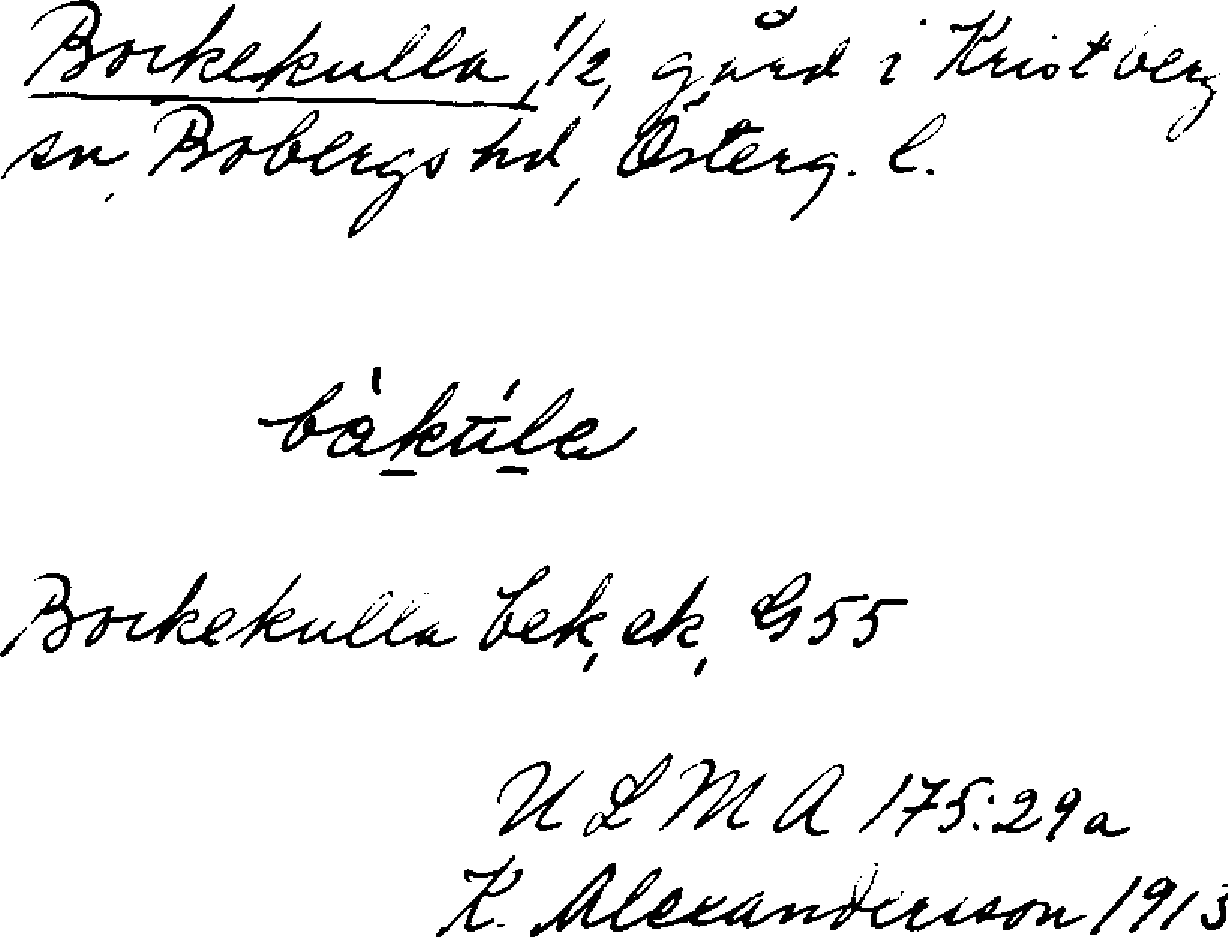 Bockekulla, 1/2, gård i Kristberg
sn, Bobergs hd, Österg. l.
bàkúla
Bockekulla bek, ek, G55
ULMA 175:29a
K. Alexandersson 1913